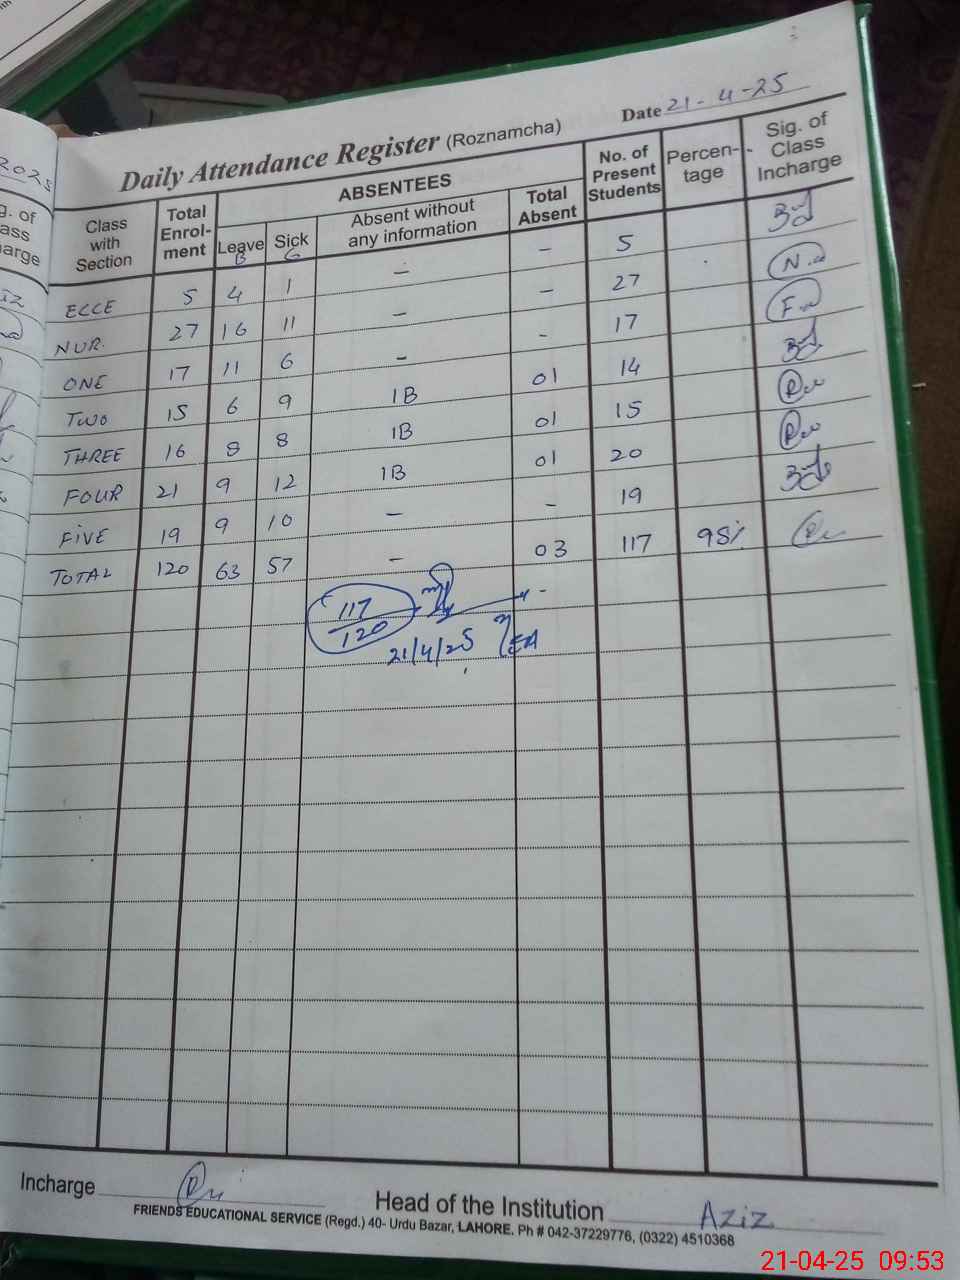 Date 21-4-25
Daily Attendance Register (Roznamcha)
Class with Section
Total Enrol- ment
ABSENTEES
Leave B
Sick G
Absent without any information
Total Absent
No. of Present Students
Percen- tage
Sig. of Class Incharge
ECCE 5 4 1 – – 5
NUR. 27 16 11 – – 27
ONE 17 11 6 – - 17
TWO 15 6 9 1B 01 14
THREE 16 8 8 1B 01 15
FOUR 21 9 12 1B 01 20
FIVE 19 9 10 – - 19
TOTAL 120 63 57 – 03 117 98%
117
120
21/4/25
Incharge
Head of the Institution Aziz
FRIENDS EDUCATIONAL SERVICE (Regd.) 40- Urdu Bazar, LAHORE. Ph # 042-37229776, (0322) 4510368
21-04-25 09:53
2025